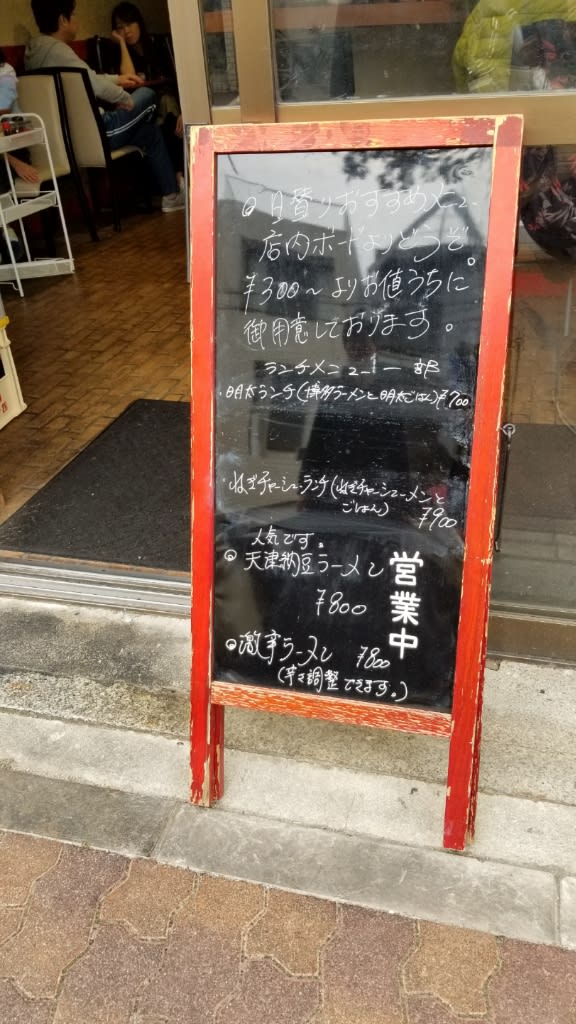 日替りおすすめメニュー
店内ボードよりどうぞ。
¥300〜よりお値うちに
御用意しております。
ランチメニュー 一部
・明太ランチ(博多ラーメンと明太ごはん)¥700
・ねぎチャーシューランチ(ねぎチャーシューメンと
ごはん) ¥900
人気です。
天津納豆ラーメン
¥800
激辛ラーメン ¥800
(辛さ調整できます。)
営業中